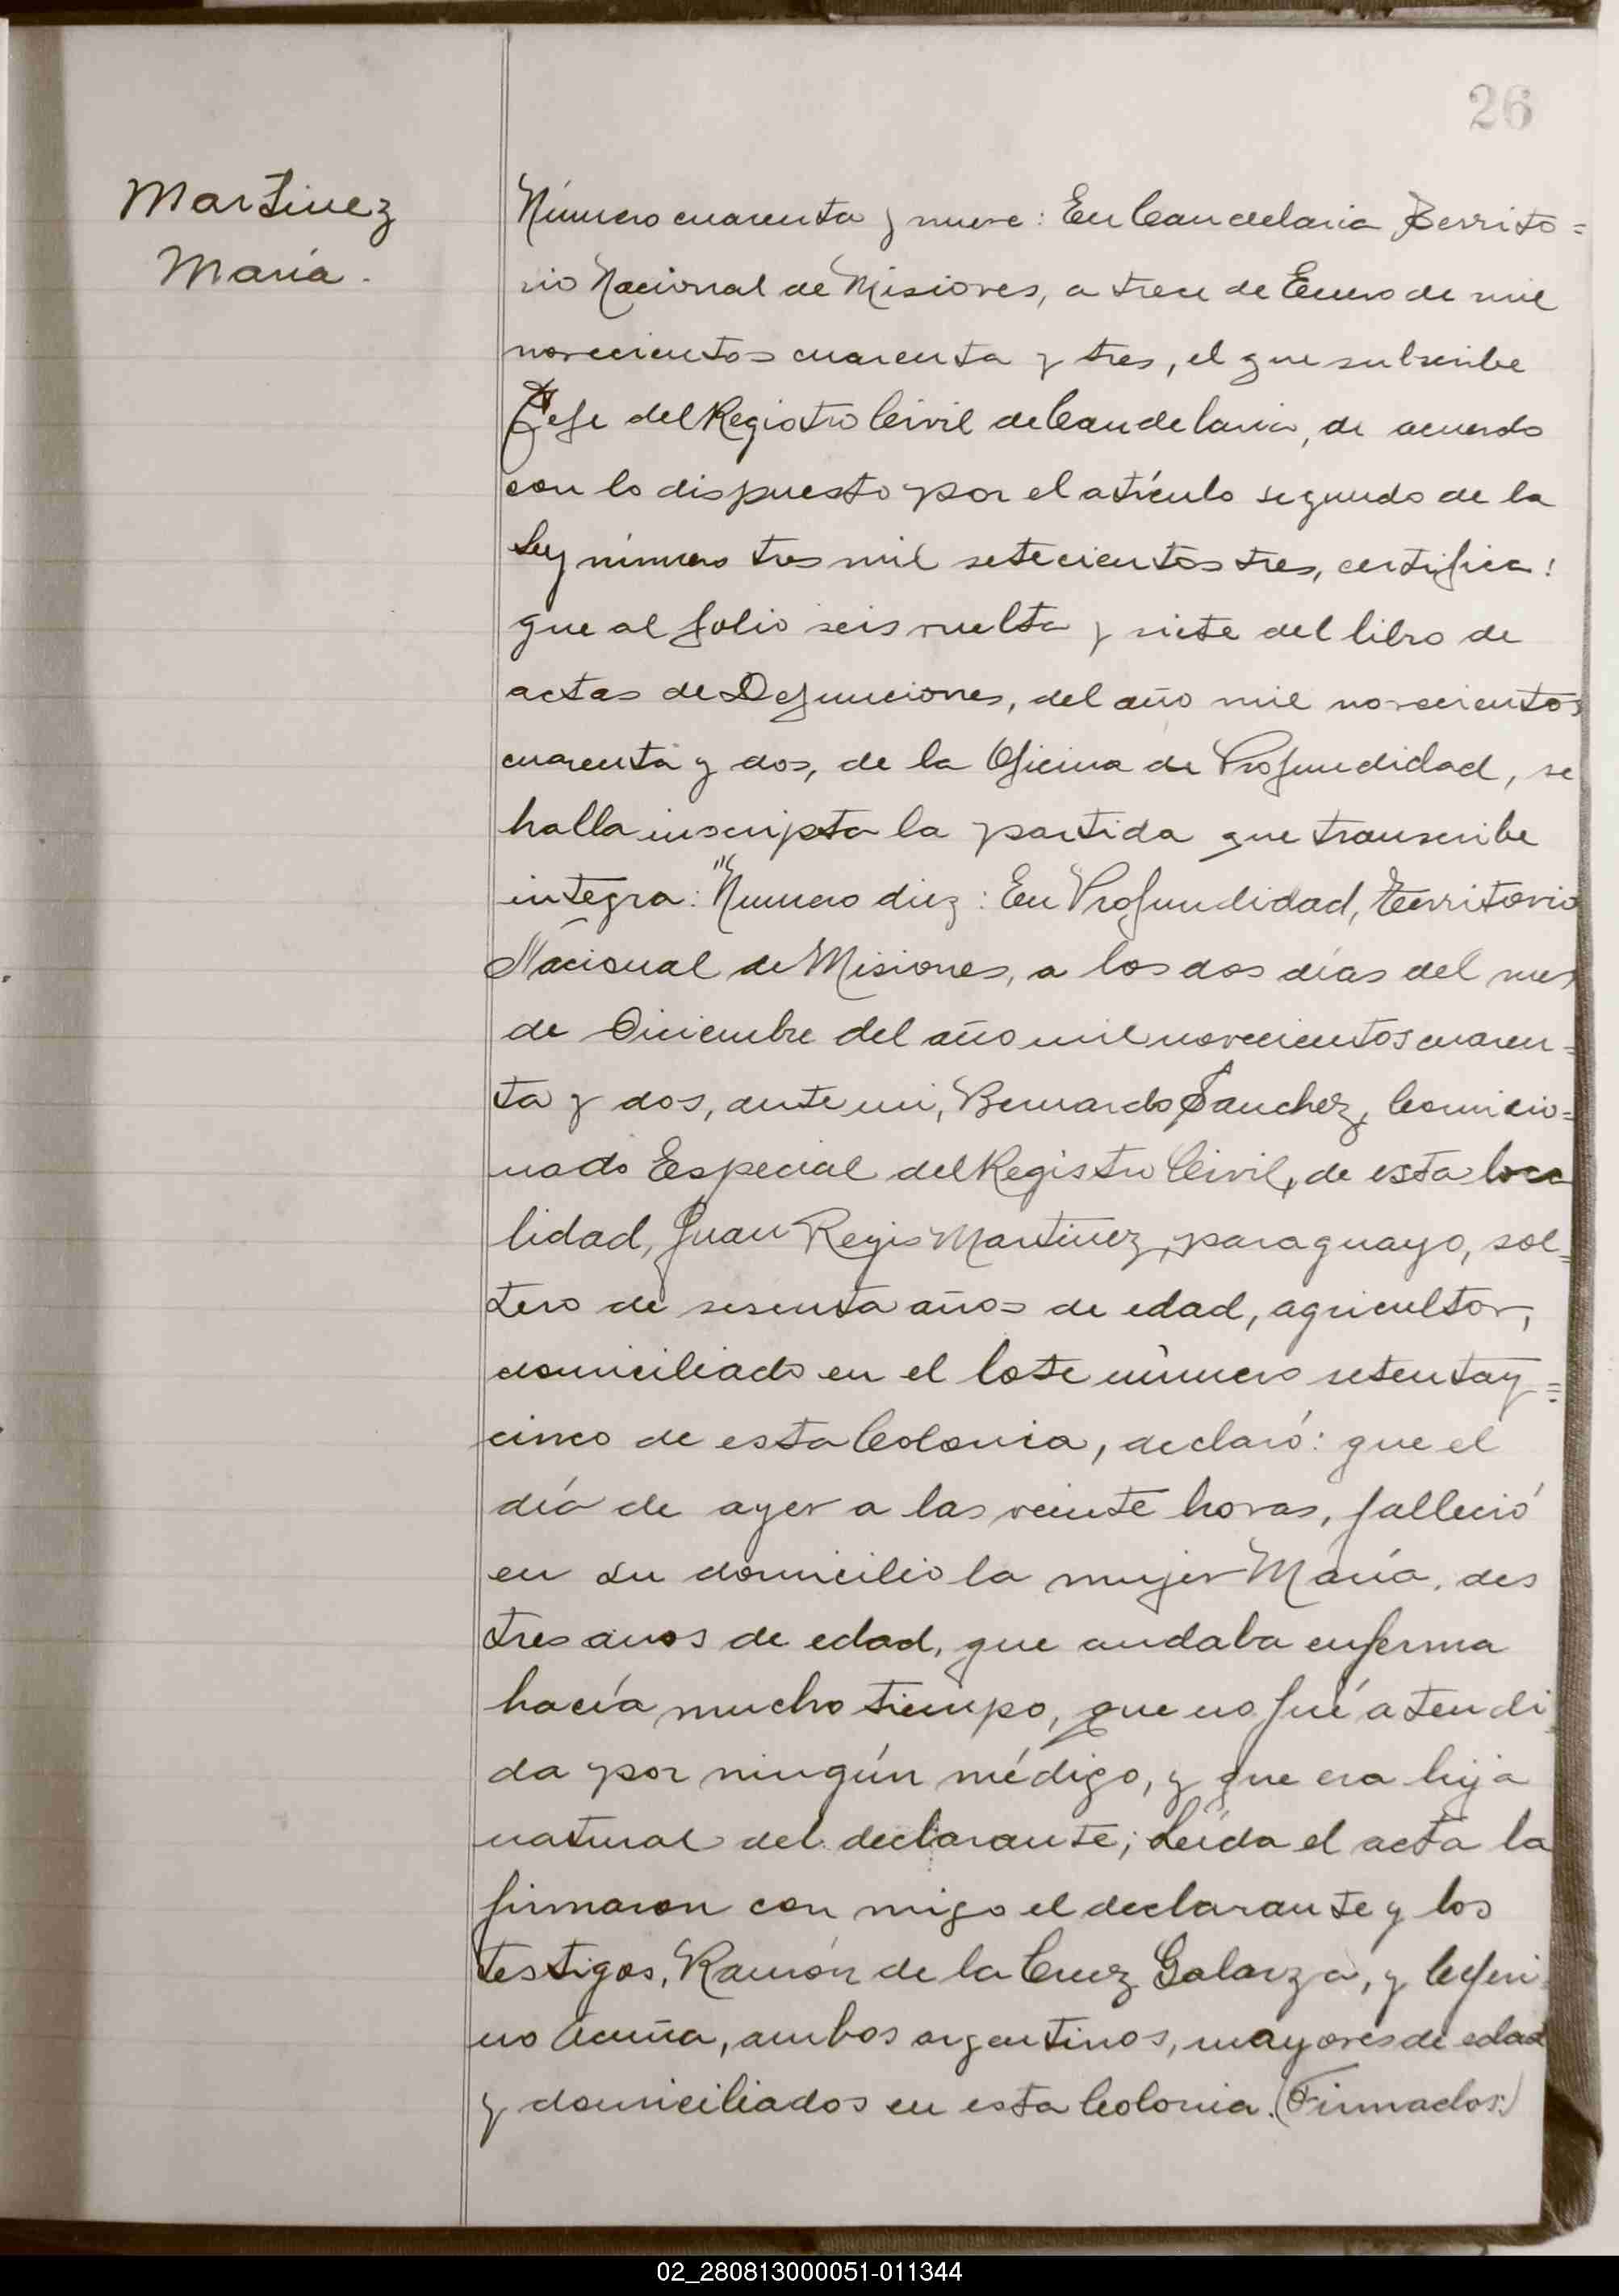 26
Martinez
María.
Número cuarenta y nueve: En Candelaria Territo=
rio Nacional de Misiones, a trece de Enero de mil
novecientos cuarenta y tres, el que subscribe
Jefe del Registro Civil de Candelaria, de acuerdo
con lo dispuesto por el atículo segundo de la
Ley número tres mil setecientos tres, certifica:
que al folio seis vuelta y siete del libro de
actas de Defunciones, del año mil novecientos
cuarenta y dos, de la Oficina de Profundidad, se
halla inscripta la partida que transcribe
integra: "Numero diez: En Profundidad, Territorio
Nacional de Misiones, a los dos días del mes
de Diciembre del año mil novecientos cuaren=
ta y dos, ante mi, Bernardo Sanchez, Comicio=
nado Especial del Registro Civil, de esta loca
lidad, Juan Regis Martinez, paraguayo, sol=
tero de sesenta años de edad, agricultor,
domiciliado en el lote número setenta y=
cinco de esta Colonia, declaró: que el
día de ayer a las veinte horas, falleció
en su domicilio la mujer María, des
tres anos de edad, que andaba enferma
hacía mucho tiempo, que no fué atendi
da por ningún médigo, y que era hija
natural del declarante; Leída el acta la
firmaron con migo el declarante y los
testigos, Ramón de la Cruz Galarza, y Ceferi
no Acuña, ambos argentinos, mayores de edad
y domiciliados en esta Colonia. (Firmados:)
02_280813000051-011344